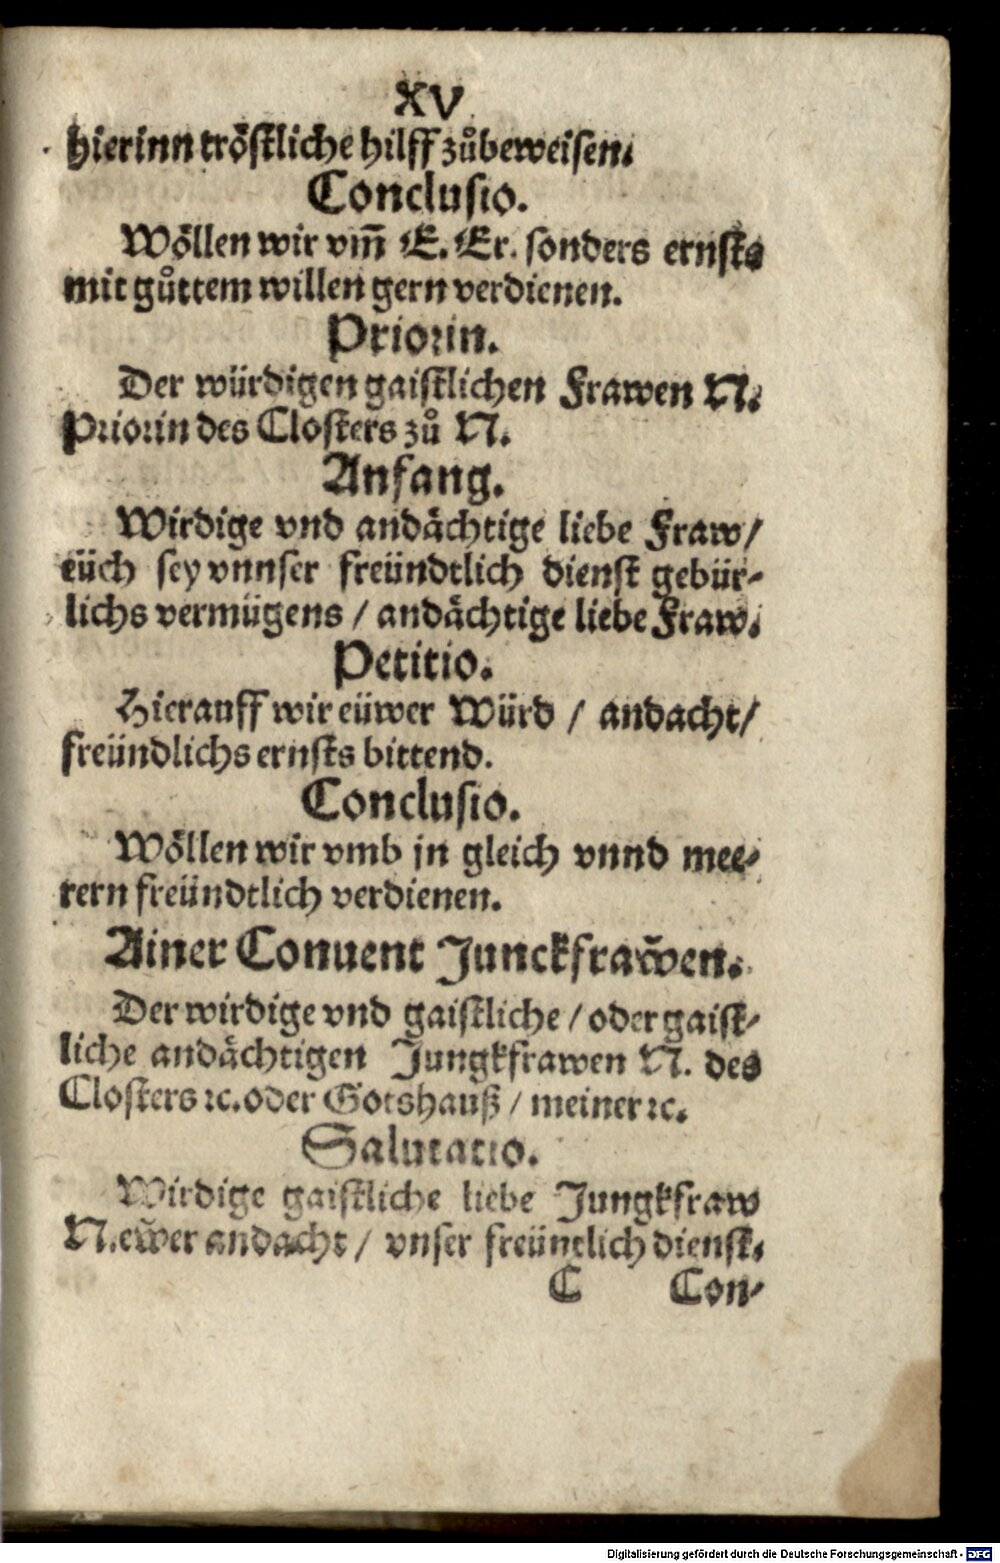 XV
hierinn tröstliche hilff zůbeweisen.
Conclusio.
Wöllen wir vm̃ E. Er. sonders ernsts
mit gůttem willen gern verdienen.
Priorin.
Der würdigen gaistlichen Frawen N.
Priorin des Closters zů N.
Anfang.
Wirdige vnd andächtige liebe Fraw/
eüch sey vnnser freündtlich dienst gebür-
lichs vermügens / andächtige liebe Fraw.
Petitio.
Hierauff wir eüwer Würd / andacht/
freündlichs ernsts bittend.
Conclusio.
Wöllen wir vmb jn gleich vnnd mee-
rern freündtlich verdienen.
Ainer Conuent Junckfraw̃en.
Der wirdige vnd gaistliche / oder gaist-
liche andächtigen Jungkfrawen N. des
Closters ꝛc. oder Gotshauß / meiner ꝛc.
Salutatio.
Wirdige gaistliche liebe Jungkfraw
N. ew̃er andacht / vnser freüntlich dienst.
C Con-
Digitalisierung gefördert durch die Deutsche Forschungsgemeinschaft - DFG